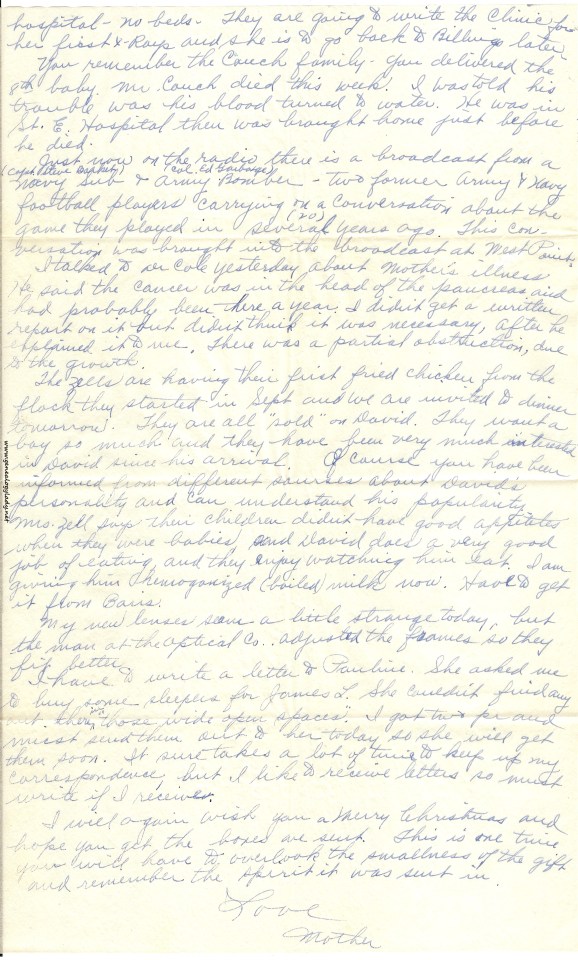 hospital - no beds. They are going to write the Clinic for
her first X-Rays and she is to go back to Billings later.
You remember the Couch family - you delivered the
8th baby. Mr. Couch died this week. I was told his
trouble was his blood turned to water. He was in
St. E. Hospital then was brought home just before
he died.
Just now on the radio there is a broadcast from a
(Capt. Steve        (Col. Ed
Navy Sub & Army Bomber - two former Army & Navy
football players carrying on a conversation about the
(20)
game they played in several years ago. This con-
versation was brought into the broadcast at West Point.
I talked to Dr Cole yesterday about Mother's illness
He said the cancer was in the head of the pancreas and
had probably been there a year. I didn't get a written
report on it but didn't think it was necessary, after he
explained it to me. There was a partial obstruction, due
to the growth.
The Zells are having their first fried chicken from the
flock they started in Sept and we are invited to dinner
tomorrow. They are all "sold" on David. They want a
boy so much and they have been very much interested
in David since his arrival. Of course you have been
informed from different sourses about David's
personality and can understand his popularity
Mrs. Zell says their children didn't have good appetites
when they were babies and David does a very good
job of eating, and they enjoy watching him eat. I am
giving him Hemoganized (boiled) milk now. Have to get
it from
My new lenses seem a little strange today, but
the man at the optical Co.. adjusted the frames so they
fit better.
I have to write a letter to Pauline. She asked me
to buy some sleepers for James L. She couldn't find any
out there in "those wide open spaces". I got two pr and
must send them out to her today so she will get
them soon. It sure takes a lot of time to keep up my
correspondence, but I like to receive letters so must
write if I receive.
I will again wish you a Merry Christmas and
hope you get the boxes we sent. This is one time
you will have to overlook the smallness of the gift
and remember the spirit it was sent in.
Love
Mother